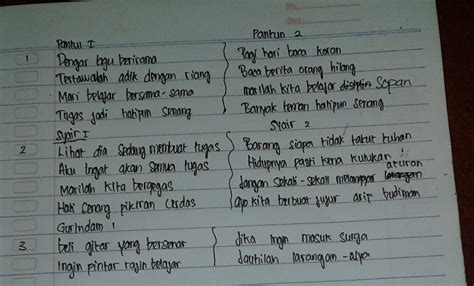 Pantun I
1 Dengar lagu berirama
Tertawalah adik dengan riang
Mari belajar bersama-sama
Tugas jadi hatipun senang
Pantun 2
Pagi hari baca koran
Baca berita orang hilang
marilah kita belajar sopan
Banyak teman hatipun senang
Syair I
2 Lihat dia sedang membuat tugas
Aku ingat akan semua tugas
Marilah kita bergegas
Hati senang pikiran cerdas
Syair 2
Barang siapa tidak takut tuhan
Hidupnya pasti kena kutukan
Jangan sekali-sekali melanggar aturan
ajo kita berbuat jujur arif budiman
Gurindam 1
3 beli gitar yang bersenar
Ingin pintar rajin belajar
Jika ingin masuk surga
Jauhilah larangan-Nya